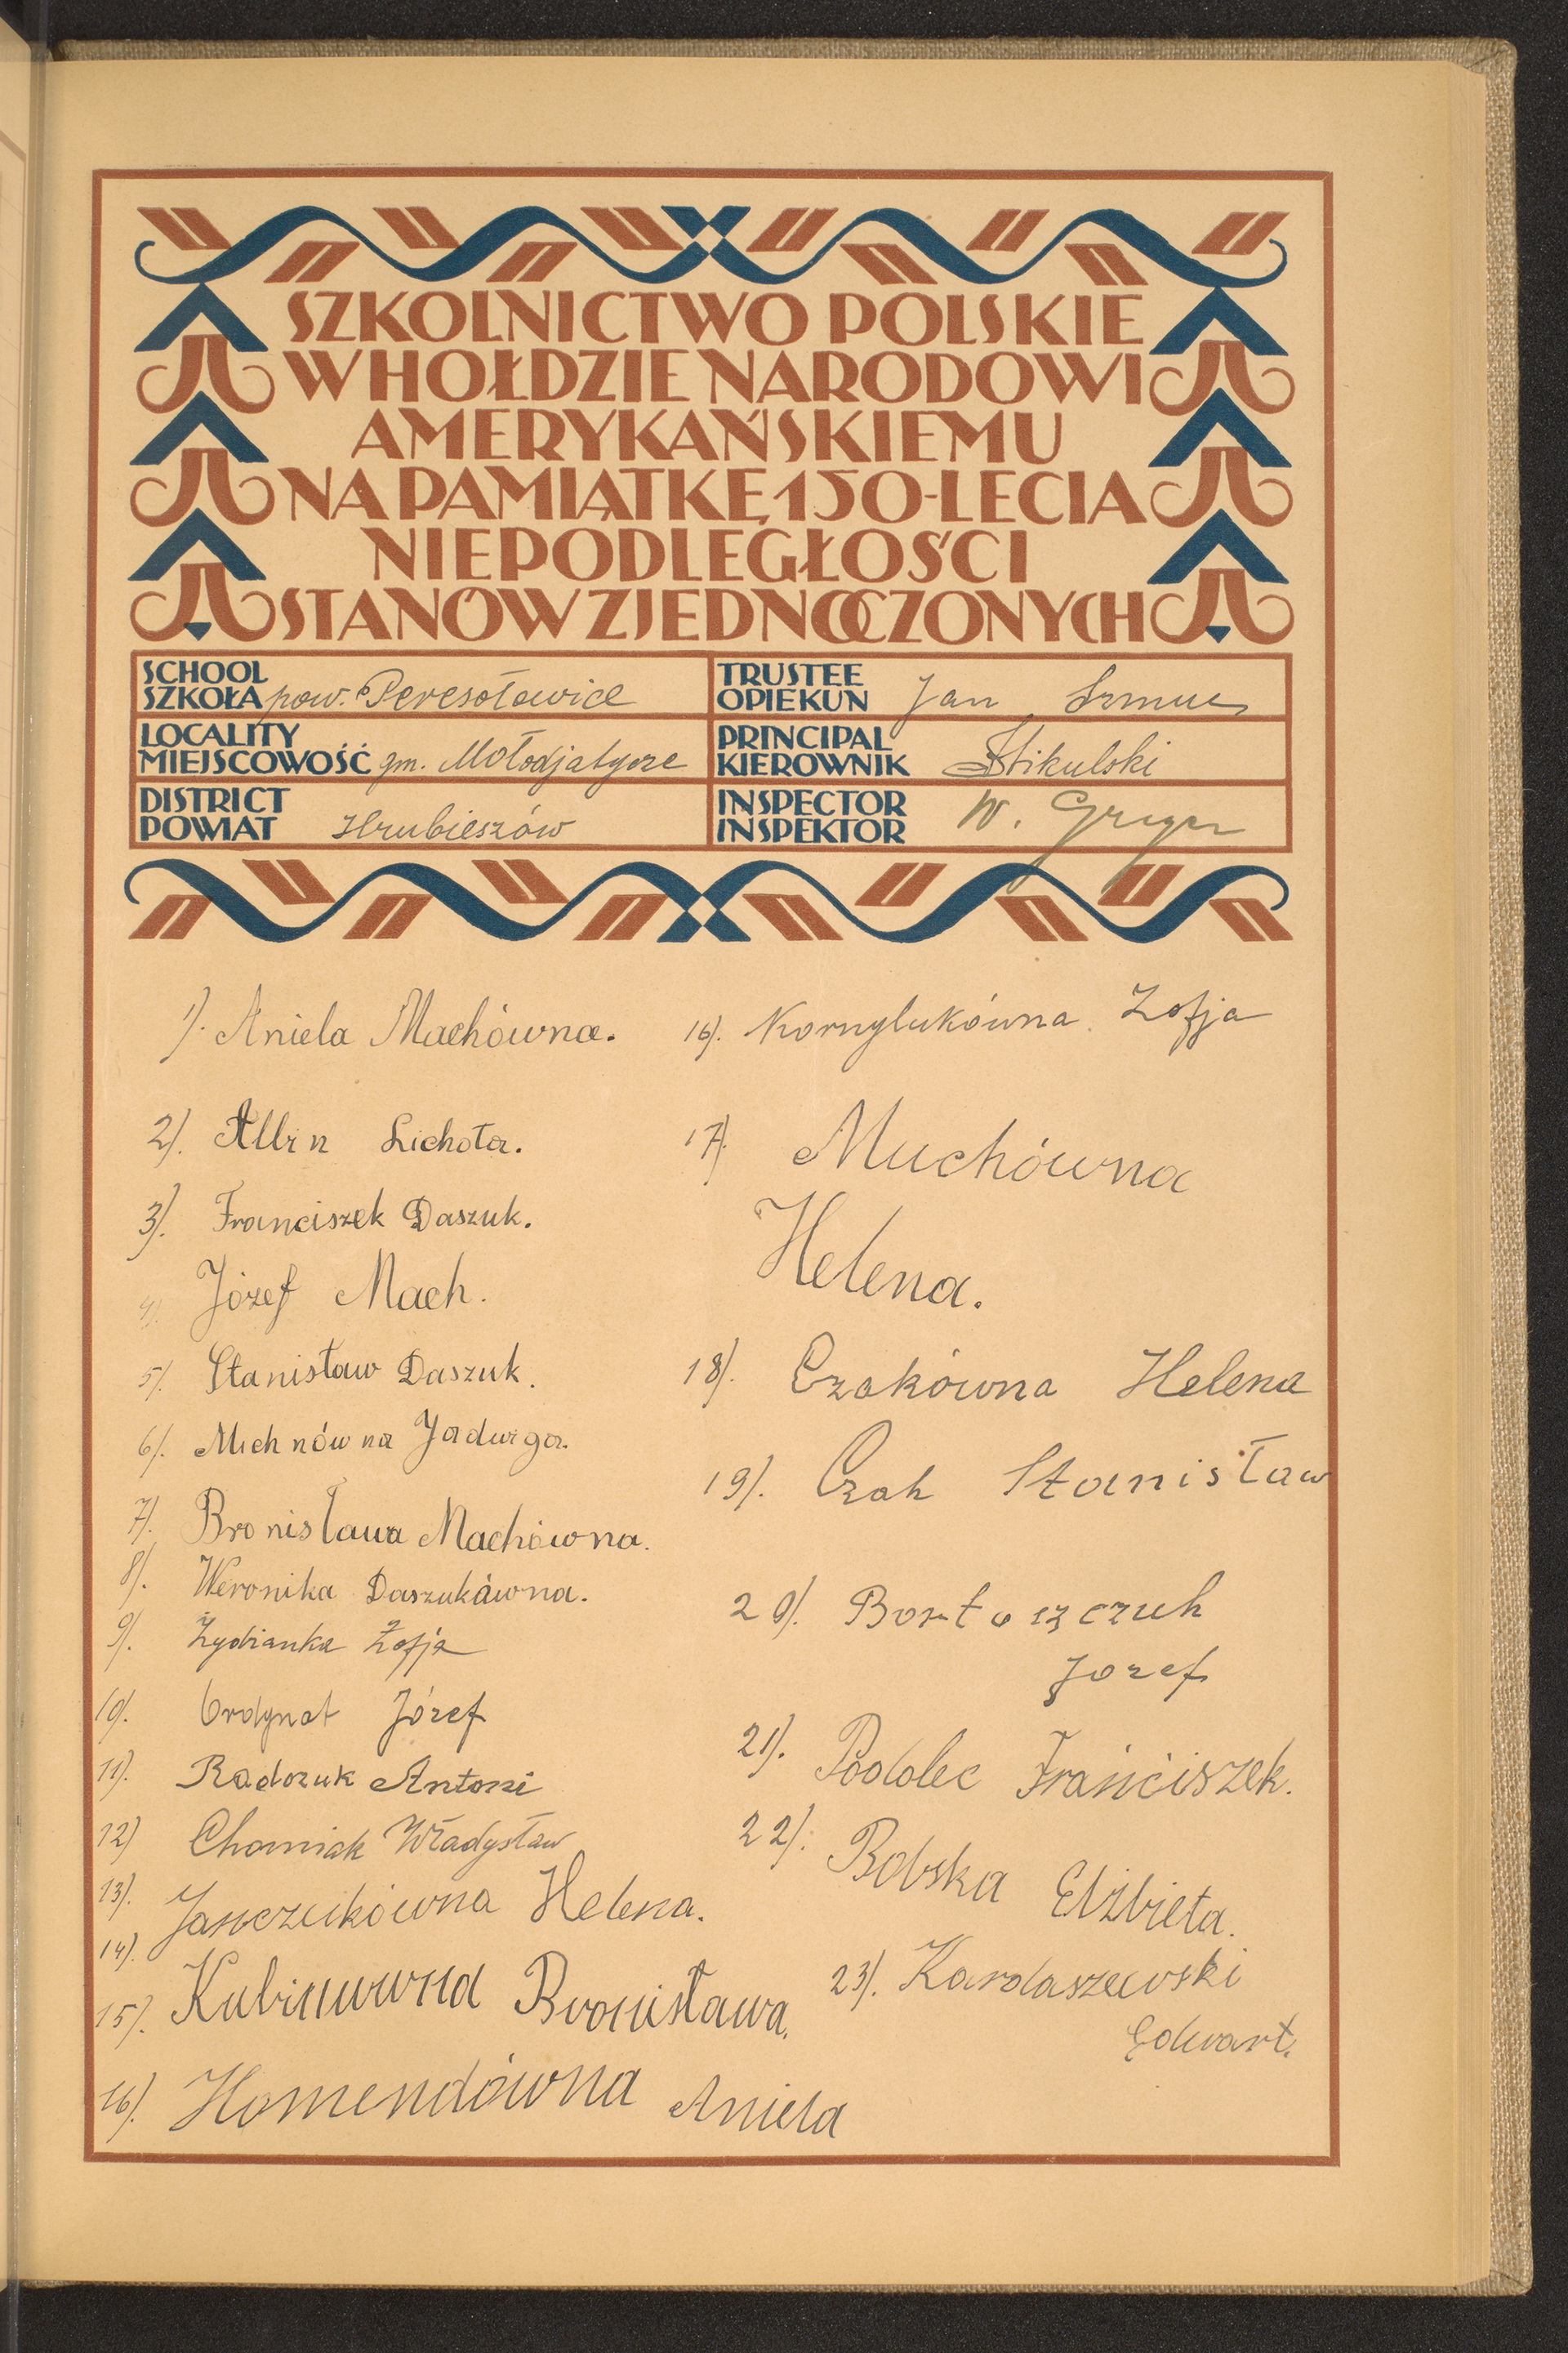 SZKOLNICTWO POLSKIE
W HOŁDZIE NARODOWI
AMERYKAŃSKIEMU
NA PAMIĄTKĘ 150-LECIA
NIEPODLEGŁOŚCI
STANÓW ZJEDNOCZONYCH
SCHOOL
SZKOŁA pow. Peresołowice
TRUSTEE
OPIEKUN Jan
LOCALITY
MIEJSCOWOŚĆ gm. Mołodjatycze
PRINCIPAL
KIEROWNIK
DISTRICT
POWIAT Hrubieszów
INSPECTOR
INSPEKTOR W.
1). Aniela Machówna.
2). Albin Lichota.
3). Franciszek Daszuk.
4). Józef Mach.
5). Stanisław Daszuk.
6). Michnówna Jadwiga.
7). Bronisława Machówna.
8). Weronika Daszukówna.
9). Żydzianka Zofja
10). Ordynat Józef
11). Radczuk Antoni
12) Chomiak Władysław
13). Janczukówna Helena.
14).
15). Kubinuwna Bronisława.
16). Homendówna Aniela
16). Kornylukówna Zofja
17). Muchówna
Helena.
18). Czakówna Helena
19). Czak Stanisław
20). Bortoszczuk
Jozef
21). Podolec Franciszek.
22). Bobska Elżbieta.
23). Kardaszewski
Edwart.